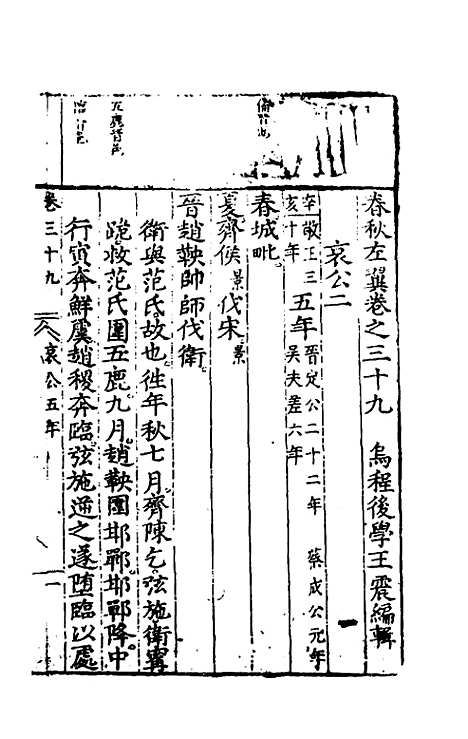 春秋左翼卷之三十九　烏程後學王震編輯
哀公二
辛亥敬王三十年五年晉定公二十二年　蔡成公元年吳夫差六年
春城毗
夏齊侯景伐宋景
晉趙鞅帥師伐衛
衛與范氏故也徃年秋七月齊陳乞弦施衛甯
跪救范氏圍五鹿九月趙鞅圍邯鄲邯鄲降中
行寅奔鮮虞趙稷奔臨弦施逆之遂堕臨以處
卷三十九
哀公五年
一